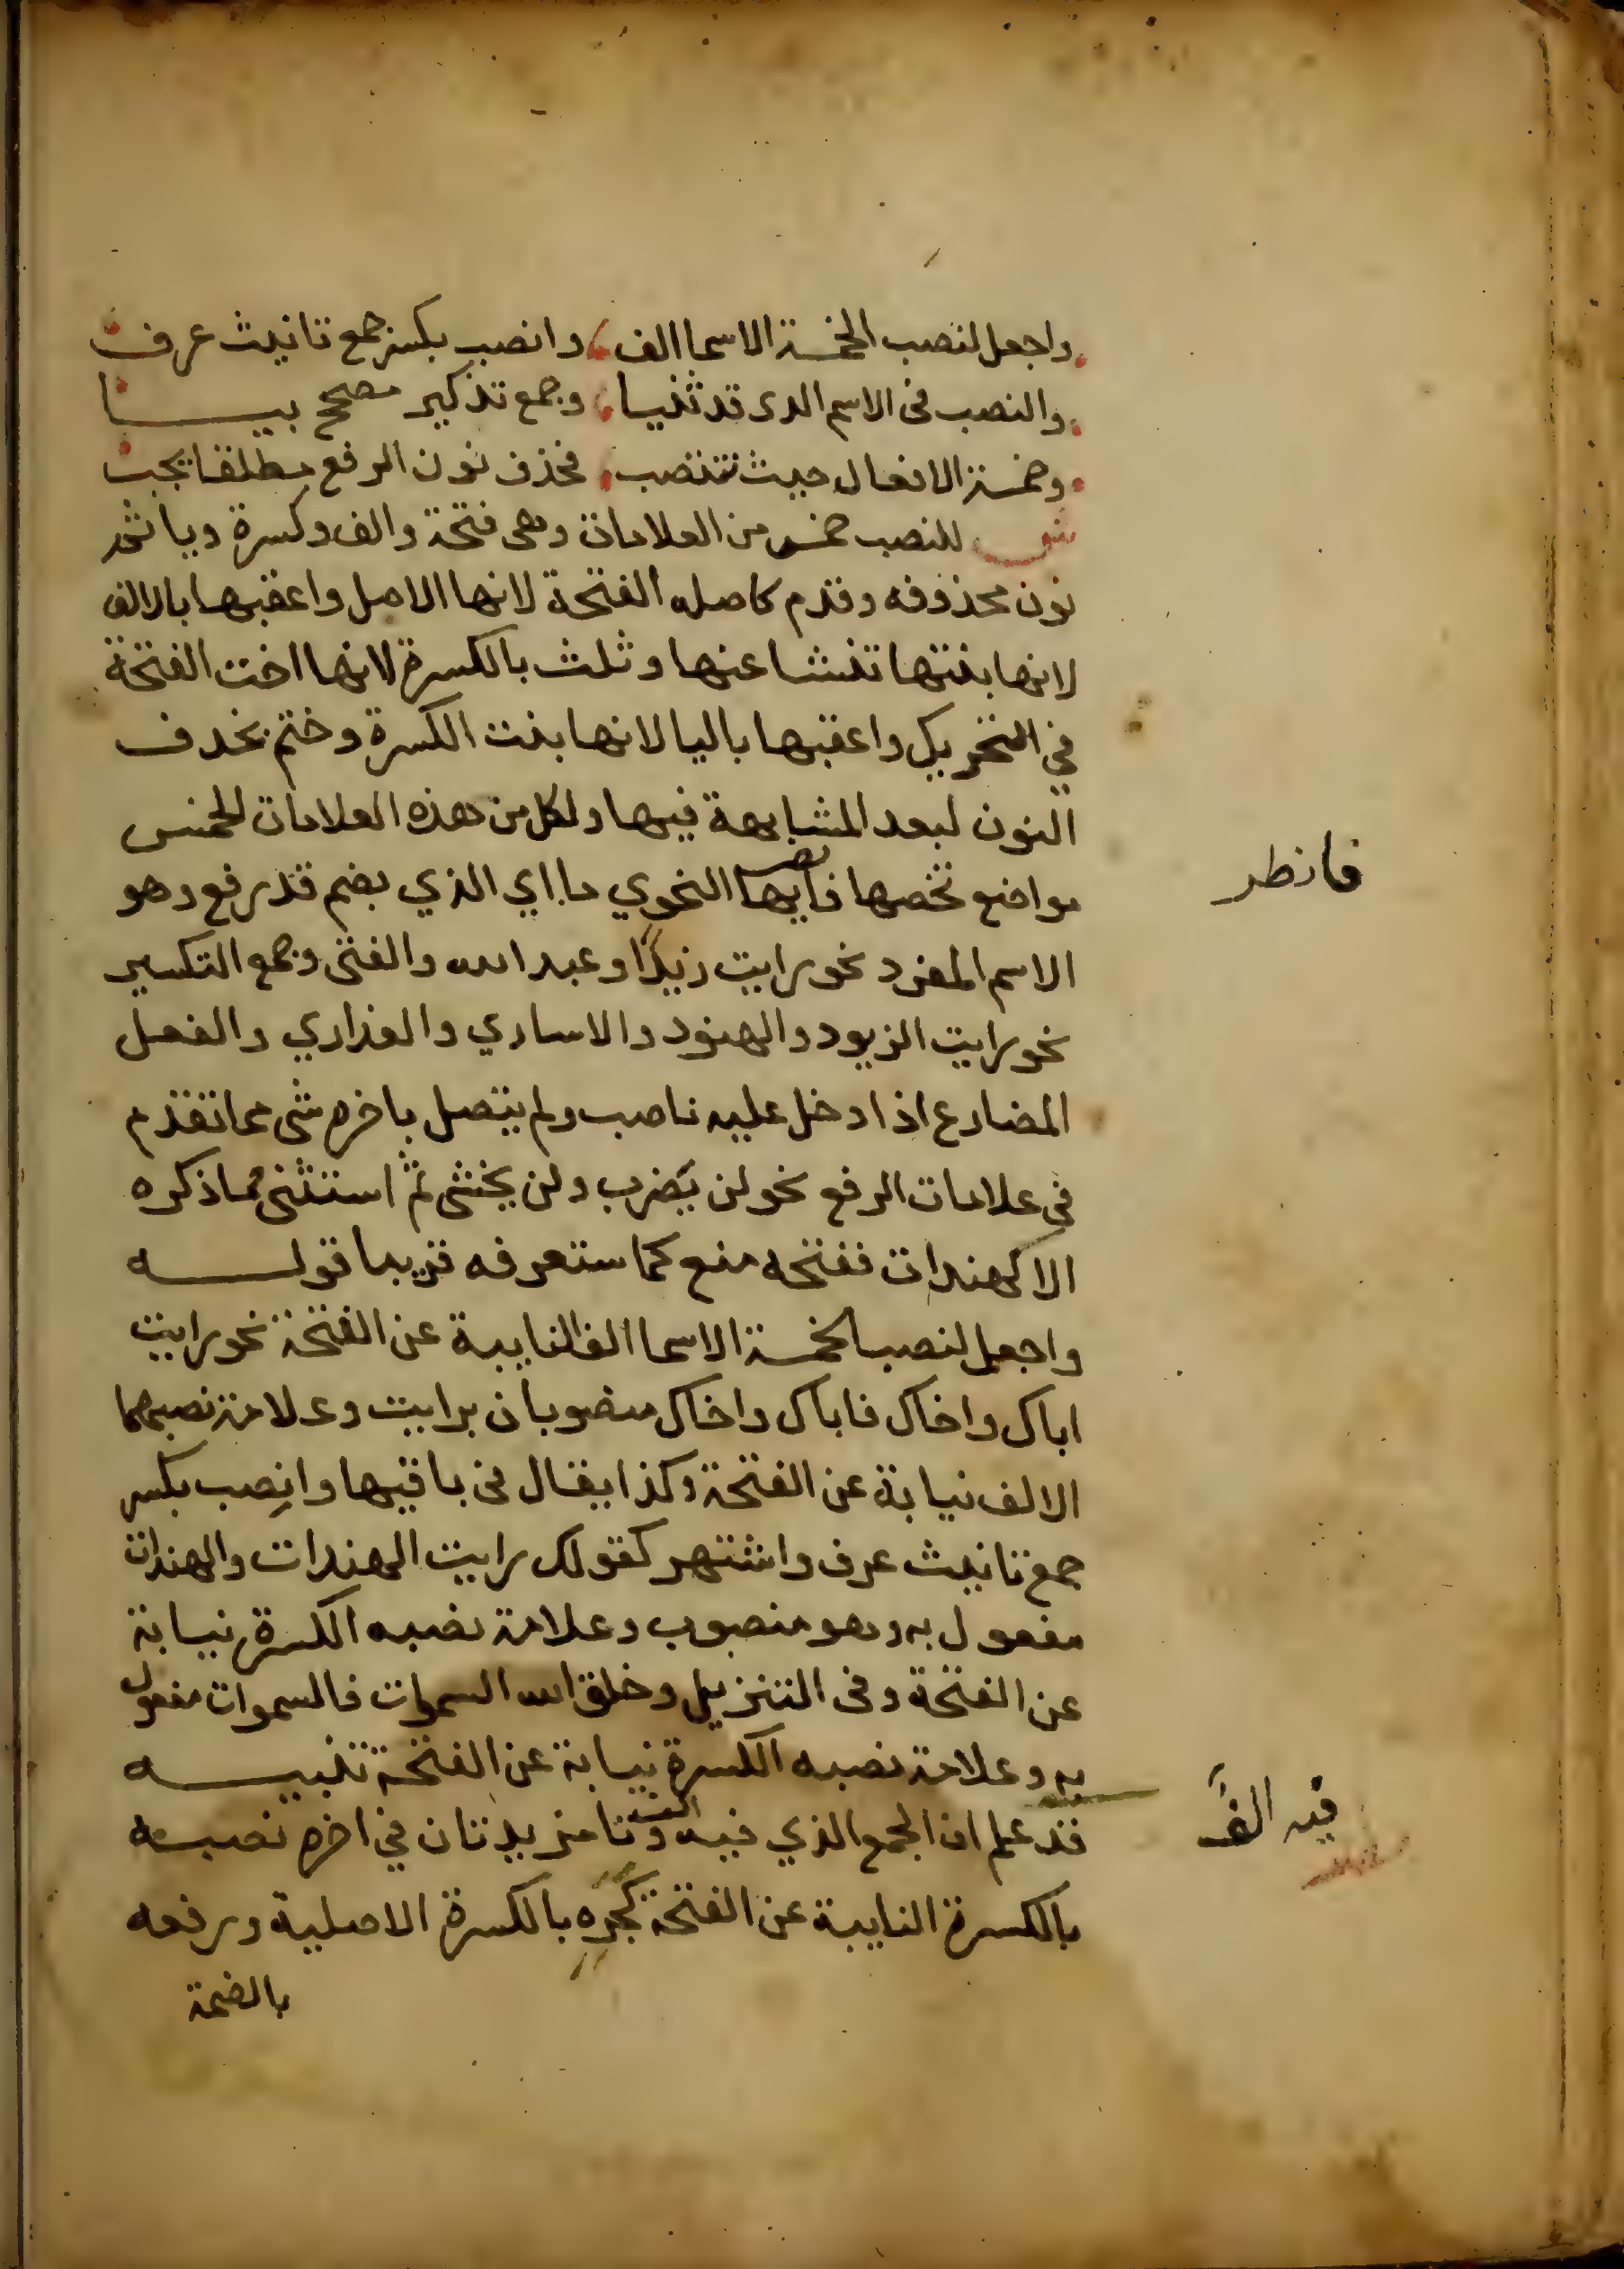 واجعل لنصب الخمسة الاسما الف وانصب بكسر جمع تانيث عرف
والنصب فى الاسم الدى قد ثنيا وجمع تذكير مصحح بيا
وخمسة الافعال حيث تنتصب فحذف نون الرفع مطلقا يجب
للنصب خمس من العلامات وهى فتحة والف وكسرة ويا ثم
نون محذوفه وقدم كاصله الفتحة لانها الاصل واعقبها بالالف
لانها بنتها تنشا عنها وثلث بالكسرة لانها اخت الفتحة
في التحريك واعقبها باليا لانها بنت الكسرة وختم بحذف
النون لبعد المشابهة فيها ولكل من هذه العلامات الخمس
مواضع تخصها النحوي ما اي الذي بضم قد رفع وهو
فانظر
الاسم المفرد نحو رايت زيدا وعبد الله والفتى وجمع التكسير
نحو رايت الزيود والهنود والاساري والعذاري والفعل
المضارع اذا دخل عليه ناصب ولم يتصل باخره شى مما تقدم
فى علامات الرفع نحو لن يضرب ولن يخشى ثم استثنى مما ذكره
الا كهندات ففتحه منع كما ستعرفه قريبا قوله
واجعل لنصب الخمسة الاسما الف النايبة عن الفتحة نحو رايت
اباك واخاك فاباك واخاك منصوبان برايت وعلامة نصبهما
الالف نيابة عن الفتحة وكذا يقال فى باقيها وانصب بكسر
جمع تانيث عرف واشتهر كقولك رايت الهندات والهندات
مفعول به وهو منصوب وعلامة نصبه الكسرة نيابة
عن الفتحة وفى التنزيل وخلق الله السموات فالسموات مفعول
به وعلامة نصبه الكسرة نيابة عن الفتحة تنبيه
قد علم ان الجمع الذي فيه الف وتا مزيدتان في اخره نصبه
فيه الف
بالكسرة النايبة عن الفتحة كجره بالكسرة الاصلية ورفعه
بالضمة